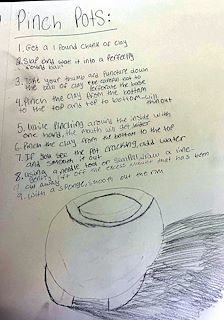 Pinch Pots:
1. Get a 1 pound chunk of clay
2. Slap and wack it into a perfectly
round ball!
3. Take your thumb and puncture down
the ball of clay *be careful not to
perforate the base
4. Pinch the clay from the bottom
to the top and top to bottom - will
thin out
5. While pinching around the inside with
one hand, the mouth will get wider
6. Pinch the clay from the bottom to the top
7. If you see the pot cracking, add water
and smooth it out
8. Using a needle tool or scalpel, draw a line
lift off the excess that has been
cut away
9. With a sponge, smooth out the rim